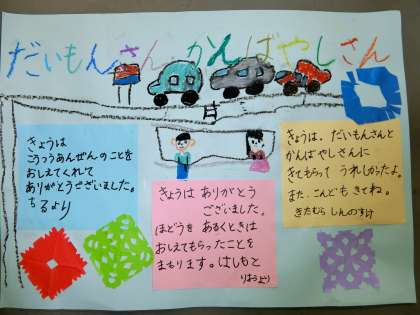 だいもんさん かんばやしさん
きょうは
こうつうあんぜんのことを
おしえてくれて
ありがとうございました。
ちるより
きょうは ありがとう
ございました。
ほどうを あるくときは
おしえてもらったことを
まもります。はしもと
りほうより
きょうは、だいもんさんと
かんばやしさんに
きてもらって うれしかったよ。
また、こんども きてね。
きたむら しんのすけ